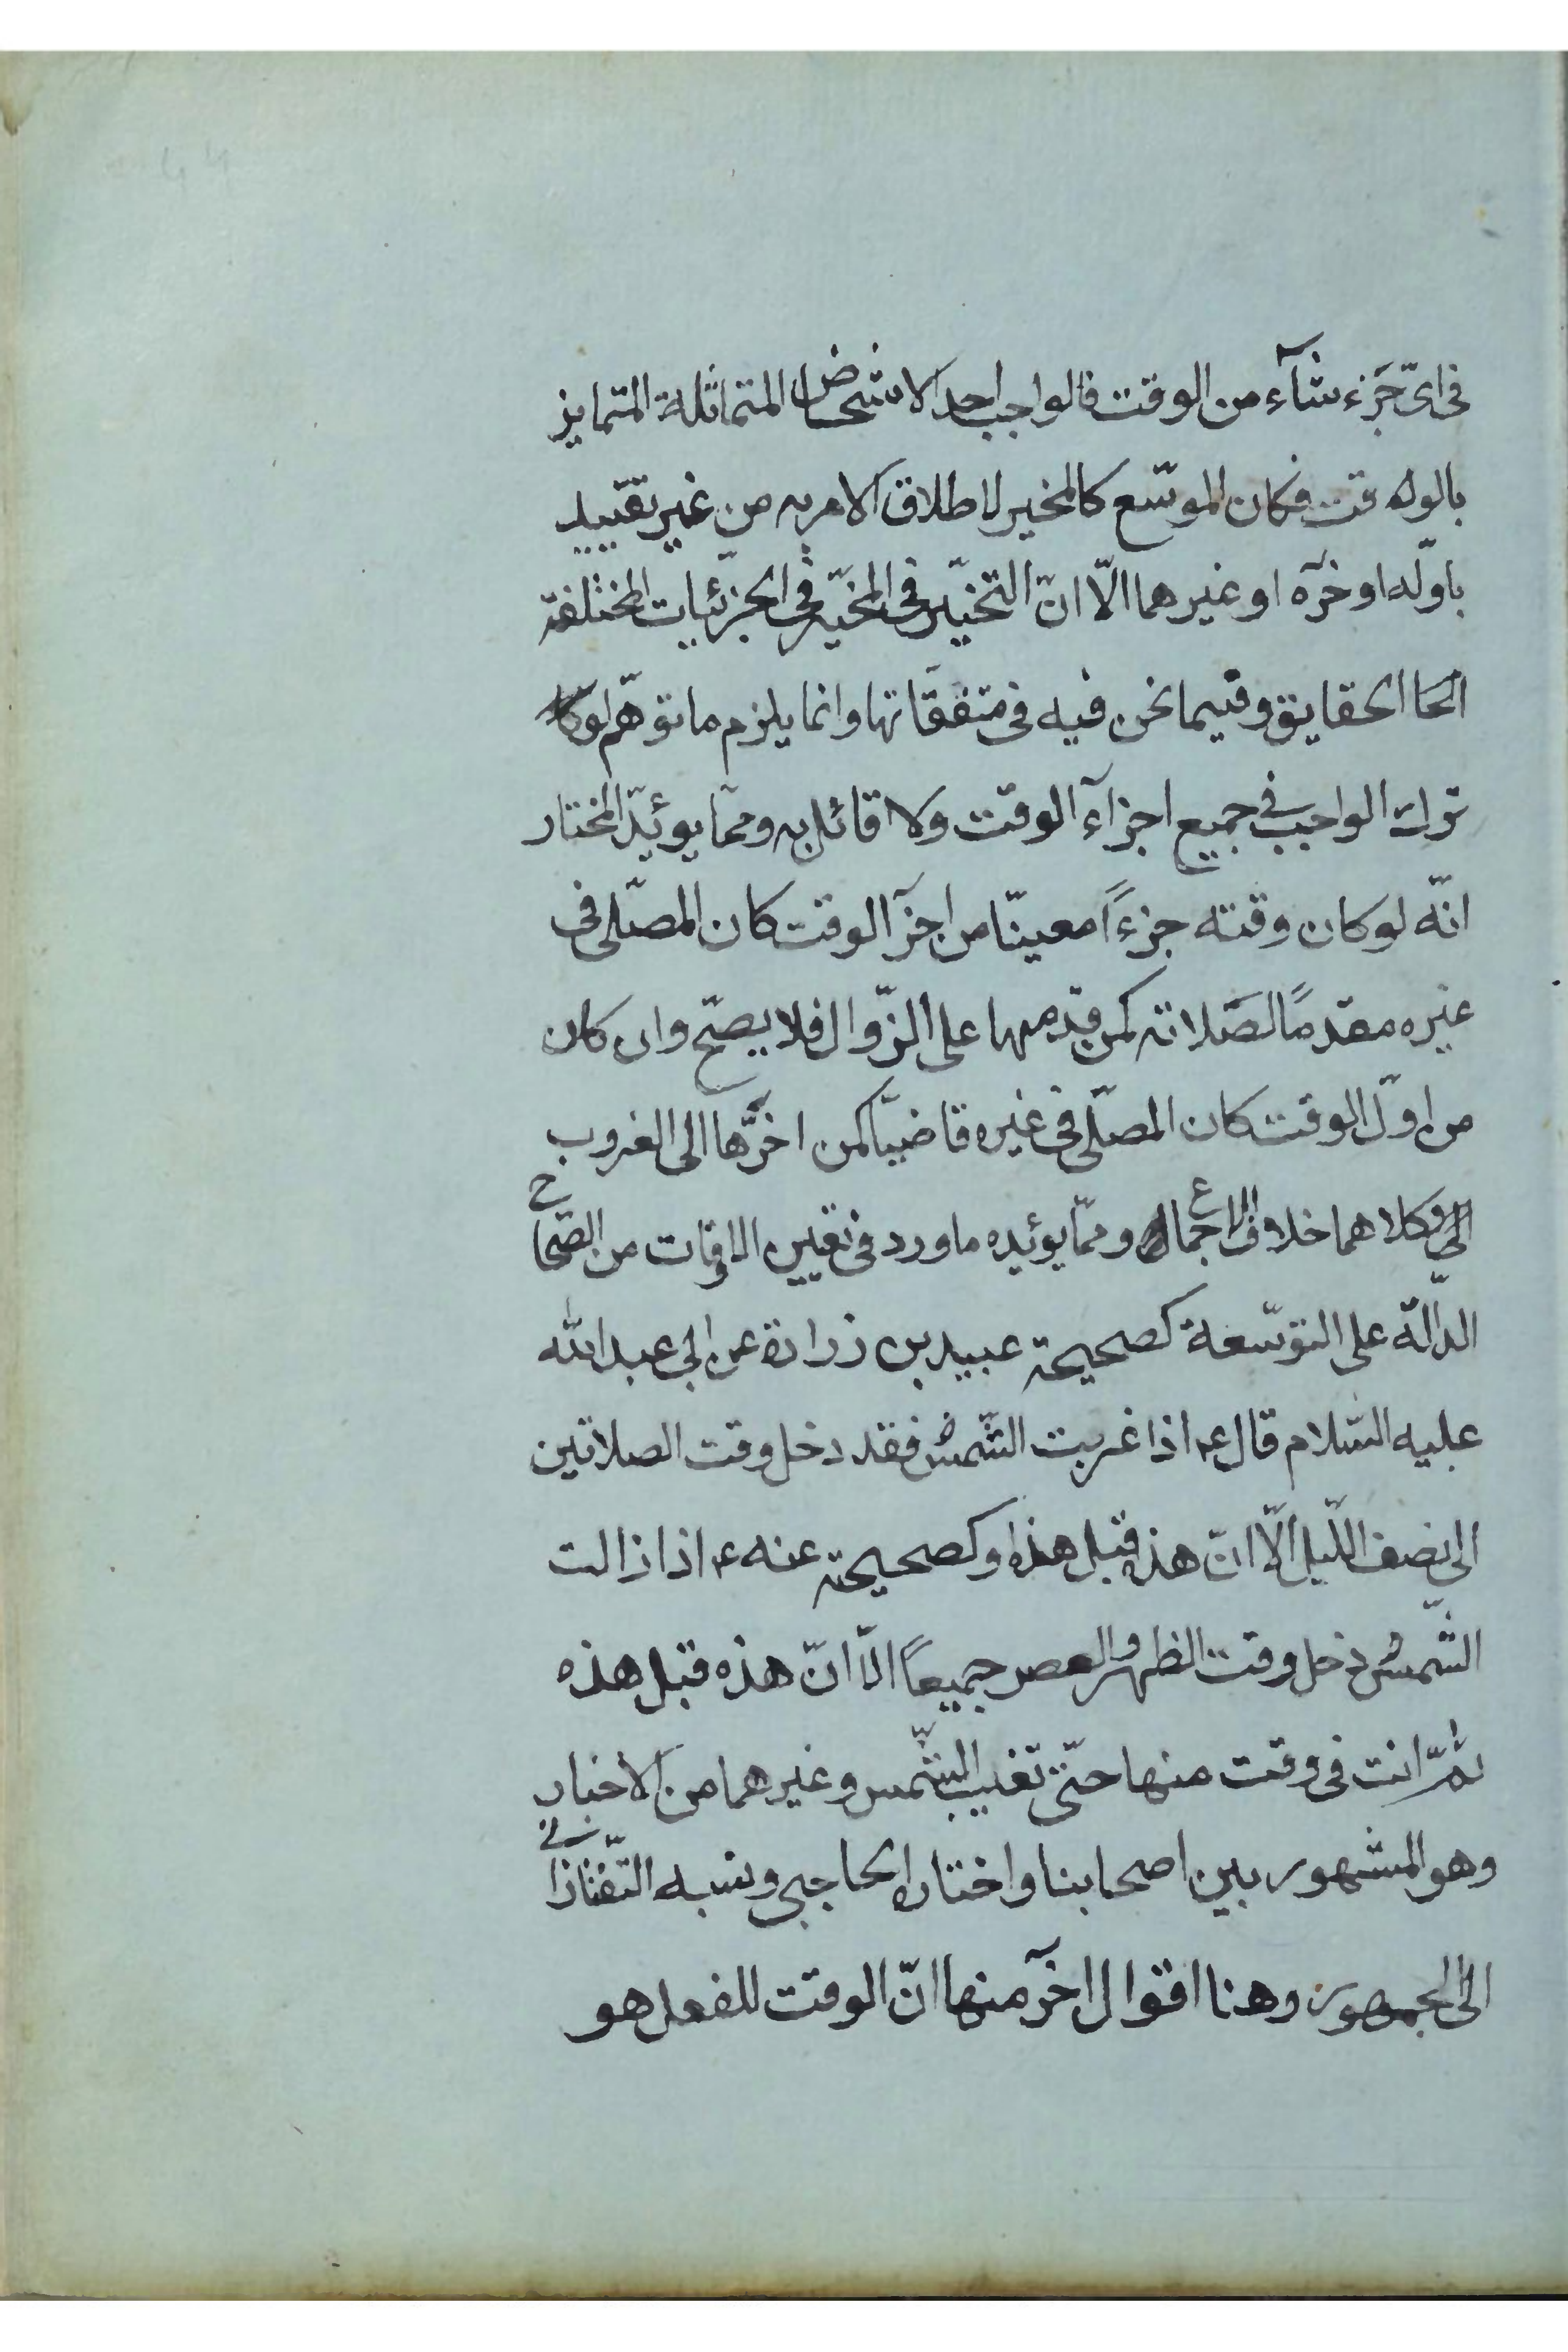 فى اىّ جزء شآء من الوقت فالواجب احد الاشخاص المتماثلة المتمايز
بالوله قت فكان الموسّع كالمخير لاطلاق الامر به من غير تقييد
باوّله او خرٓه او غيرهما الّا انّ التخيّر فى المخيّر فى الجزئيات المختلفة
الحا الحقايق وفيما نحن فيه فى متفقاتها وانما يلزم ما توهّم لوكا
ترك الواجب فى جميع اجزآء الوقت ولا قائل به وممّا يوئيّد المختار
انّه لو كان وقته جزءاً معينّا من اجزٓا الوقت كان المصلّى فى
غيره مقدماً لصلاته كمن قدمها على الزّوال فلا يصحّ وان كان
من اوّل الوقت كان المصلّى فى غيره قاضيّا كمن اخرّها الى الغروب
الى وكلاهما خلاف الاجماع وممّا يوئيده ما ورد فى تعيين الاوقات من الصّحاح
الدّالّة على التوسّعة كصحيحة عبيد بن زرارة عن ابى عبد الله
عليه السّلام قال ع اذا غربت الشّمس فقد دخل وقت الصلاتين
الى نصف اللّيل الّا انّ هذه قبل هذه وكصحيحة عنه ع اذا زالت
الشّمس دخل وقت الظهر والعصر جميعاً الّا انّ هذه قبل هذه
ثمّ انت فى وقت منها حتّى تغيب الشّمس وغيرهما من الاخبار
وهو المشهور بين اصحابنا واختاره الحاجبى ونسبه التّفتازانى
الى الجمهور وهنا اقوال اخرٓ منها انّ الوقت للفعل هو